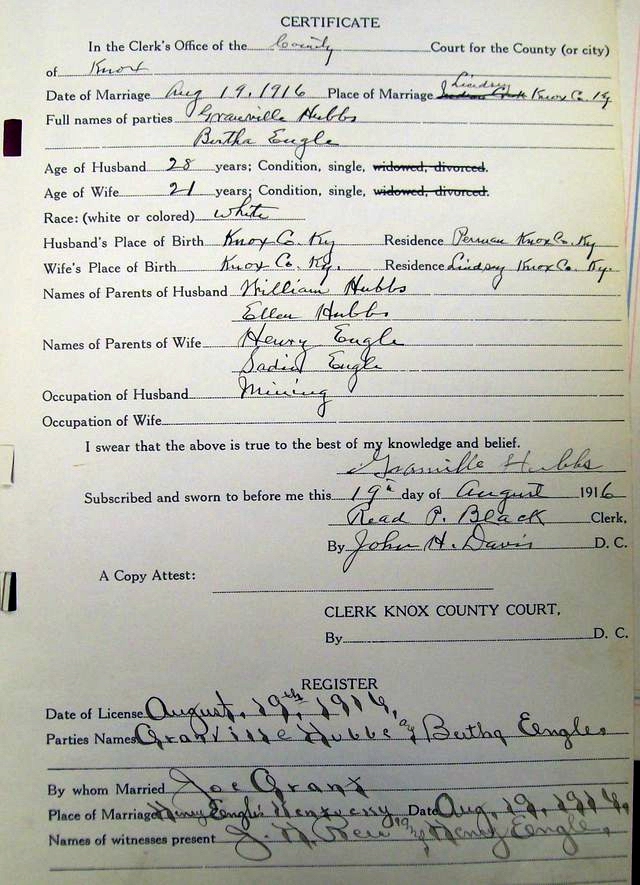 CERTIFICATE
In the Clerk's Office of the County Court for the County (or city)
of Knox
Date of Marriage Aug 19, 1916 Place of Marriage Lindsey Knox Co. Ky
Full names of parties Granville Hubbs
Bertha Eugle
Age of Husband 28 years; Condition, single, widowed, divorced.
Age of Wife 21 years; Condition, single, widowed, divorced.
Race: (white or colored) white
Husband's Place of Birth Knox Co. Ky Residence Knox Co. Ky
Wife's Place of Birth Knox Co. Ky. Residence Lindsey Knox Co. Ky.
Names of Parents of Husband William Hubbs
Ellen Hubbs
Names of Parents of Wife Henry Engle
Engle
Occupation of Husband Mining
Occupation of Wife
I swear that the above is true to the best of my knowledge and belief.
Granville Hubbs
Subscribed and sworn to before me this 19th day of August 1916
Read P. Black Clerk,
By John H. Davis D. C.
A Copy Attest:
CLERK KNOX COUNTY COURT,
By D. C.
REGISTER
Date of License August, 19th, 1916,
Parties Names Granville Hubbs Bertha Eengle
By whom Married Joe Grant
Place of Marriage Henry Eengle's Kentucky Date Aug, 19, 1916,
Names of witnesses present Henry Eengle,